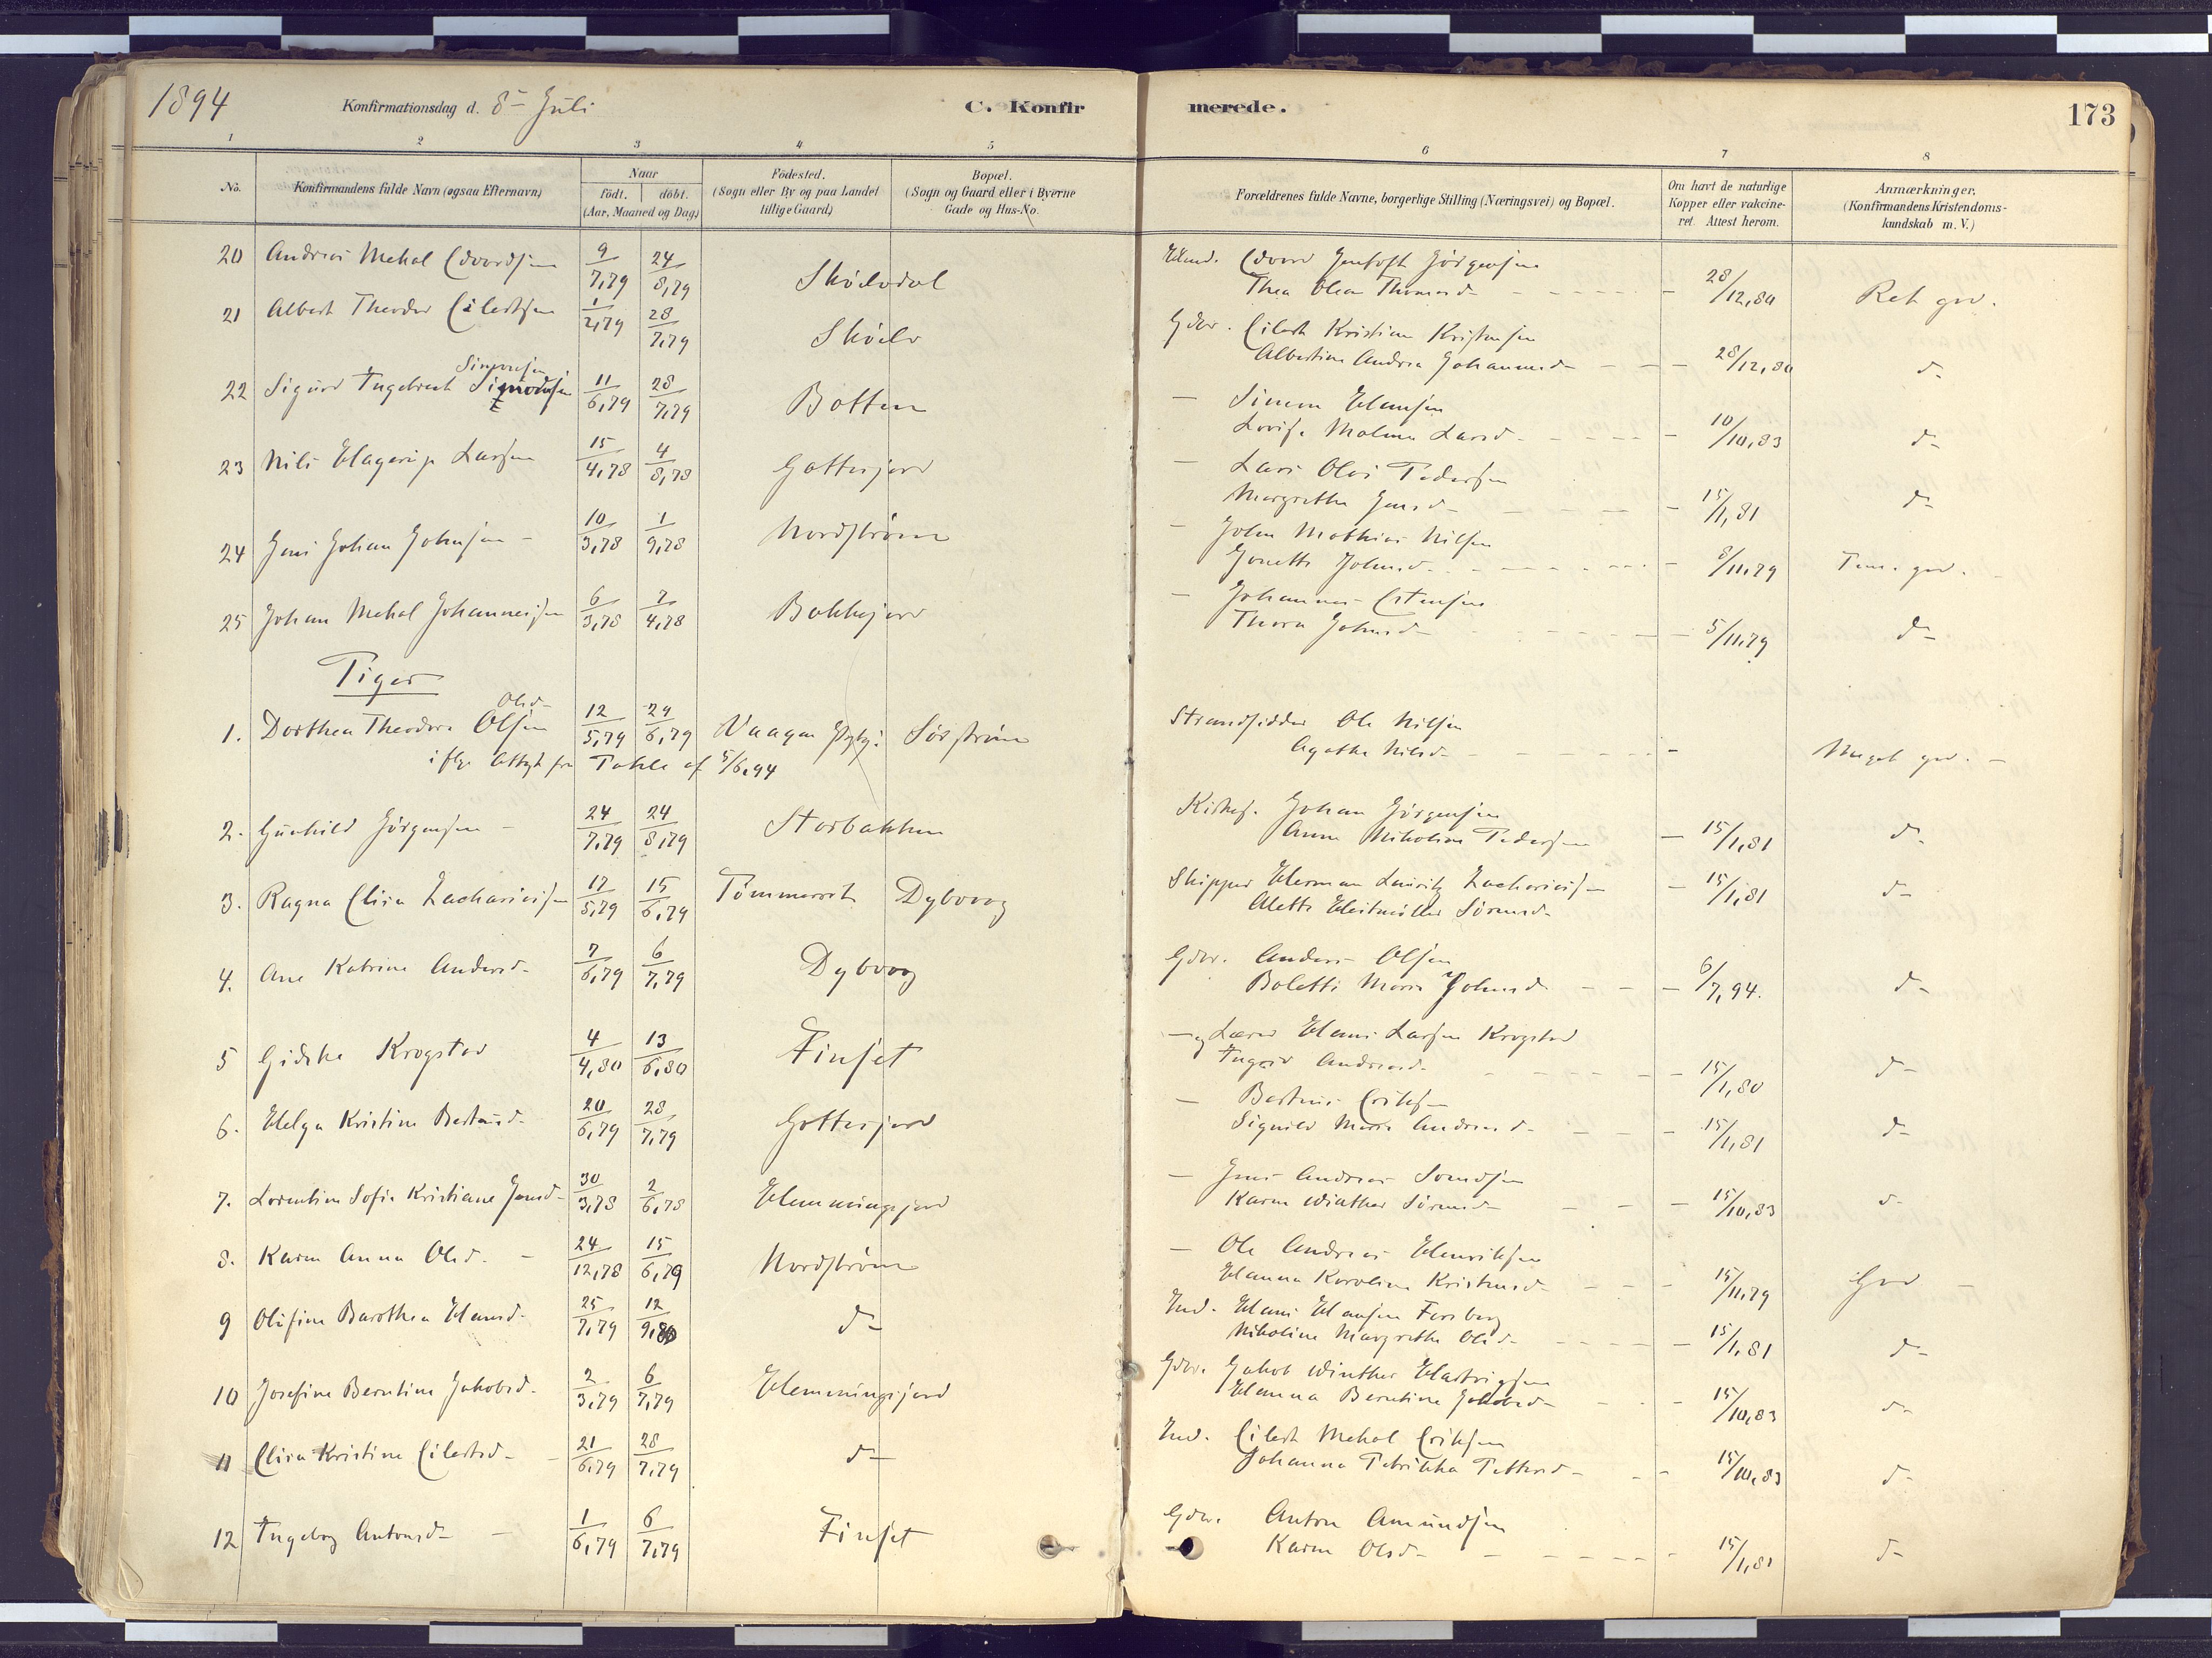 1894 Konfirmationsdag d. 8- Juli C. Konfirmerede. 173
1 2 3 4 5 6 7 8
No. Konfirmandens fulde Navn (ogsaa Efternavn) Naar födt. döbt. (Aar, Maaned og Dag) Födested. (Sogn eller By og paa Landet tillige Gaard) Bopæl. (Sogn og Gaard eller i Byerne Gade og Hus-No. Forældrenes fulde Navne, borgerlige Stilling (Næringsvei) og Bopæl. Om havt de naturlige Kopper eller vakcineret. Attest herom. Anmærkninger. (Konfirmandens Kristendomskundskab m. V.)
20 Andreas Mekal Edvardsen 9/7,79 24/8,79 Skódodal Edvard Gentoft Jörgensen
Thea Olea Thomasd- 28/12,80 Ret god.
21 Albert Theodor Eilertsen 1/2,79 28/7,79 Skóelv Gdbr. Eilert Kristian Kristensen
Albertine Andrea Johannesd- 28/12,80 d-
Simonsen
22 Sigurd Ingebrect 11/6,79 28/7,79 Botten - Simon Hansen
Lovise Malena Larsd- 10/10,83 d-
23 Nils Hagerup Larsen 15/4,78 4/8,78 Gottesjord - Lars Olai Pedersen
Margrethe Jensd- 15/1,81 d-
24 Jens Johan Johnsen - 10/3,78 1/9,78 Nordströmen - John Mathias Nilsen
Jonette Johnsd- 8/11,79 Tem. god.
25 Johan Mekal Johannesen 6/3,78 7/4,78 Bakkejord - Johannes Estensen
Thora Johnsd- 5/11,79 d-
Piger
Olsd-
1. Dorthea Theodora Olsen 12/5,79 29/6,79 Vaagan Sörströmen Strandsidder Ole Nilsen
Agathe Nilsd- Meget god. -
iflg. Attest fra af 5/6,94
2. Gunhild Jörgensen - 24/7,79 24/8,79 Storbakken Kirkes. Johan Jörgensen
Anna Nikoline Pedersen - 15/1,81 d-
3. Ragna Elisa Zachariasen 17/5,79 15/6,79 Tömmervik Dybvaag Skipper Herman Lauritz Zachariasen
Alette Heitmöller Sörensd- 15/1,81 d-
4. Ane Katrine Andersd- 7/6,79 6/7,79 Dybvaag Gdbr. Anders Olsen
Bolette Marie Johnsd- 6/7,94. d-
5 Gidske Krogstad 4/4,80 13/6,80 Finset - og Lærer Hans Larsen Krogstad
Ingrid Andreasd- 15/1,80 d-
6. Helga Kristine Bertinsd- 20/6,79 28/7,79 Gottesjord - Bertinus Eriksen
Signild Marie Andreasd- 15/1,81 d-
7. Lorentine Sofie Kristiane Jensd- 30/3,78 2/6,78 Hemmingsjord - Jens Andreas Svendsen
Karen Winther Sörensd- 15/10,83 d-
8. Karen Anna Olsd. - 24/12,78 15/6,79 Nordströmen - Ole Andreas Henriksen
Hanna Karolina Kristensd- 15/11,79 God -
9 Olufine Barothea Hansd- 25/7,79 12/9,80 d- Ind. Hans Hansen Forsberg
Nikoline Margrethe Olsd- 15/1,81 d-
10 Josefine Berntine Jakobsd. 2/3,79 6/7,79 Hemmingsjord Gdbr. Jakob Winther Hartvigsen
Hanna Berntine Jakobsd- 15/10,83 d-
11 Elisa Kristine Eilertsd- 21/6,79 28/7,79 d- Ind. Eilert Mekal Eriksen
Johanna Petrikka Pettersd- 15/10,83 d-
12 Ingeborg Antonsd- - 1/6,79 6/7,79 Finset Gdbr. Anton Amundsen
Karen Olsd- 15/1,81 d-